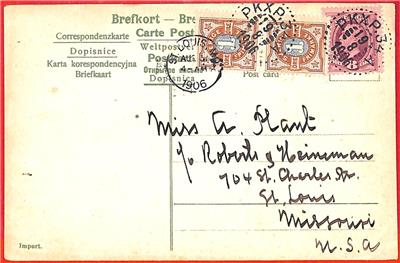 Brefkort - Bre
Correspondenzkarte
Carte Post
Dopisnice
Weltpost
Karta korespondencyjna
Briefkaart
Dopisnica
Post card
PKXP. 34
1906
PKXP. 34
1906
ST. LOUIS, MO.
AUG
1906
Miss A. Plant
c/o Roberts & Heineman
704 St. Charles Str.
St. Louis
Missouri
U.S.A
Import.